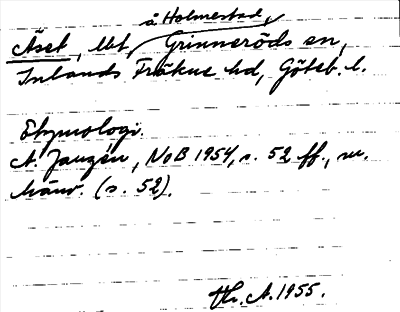 å Holmestad,
Äset, lbt, Grinneröds sn,
Inlands Fräkne hd, Göteb. l.
Etymologi.
A. Janzén, NoB 1954, s. 52 ff., m.
hänv. (s. 52).
A. 1955.